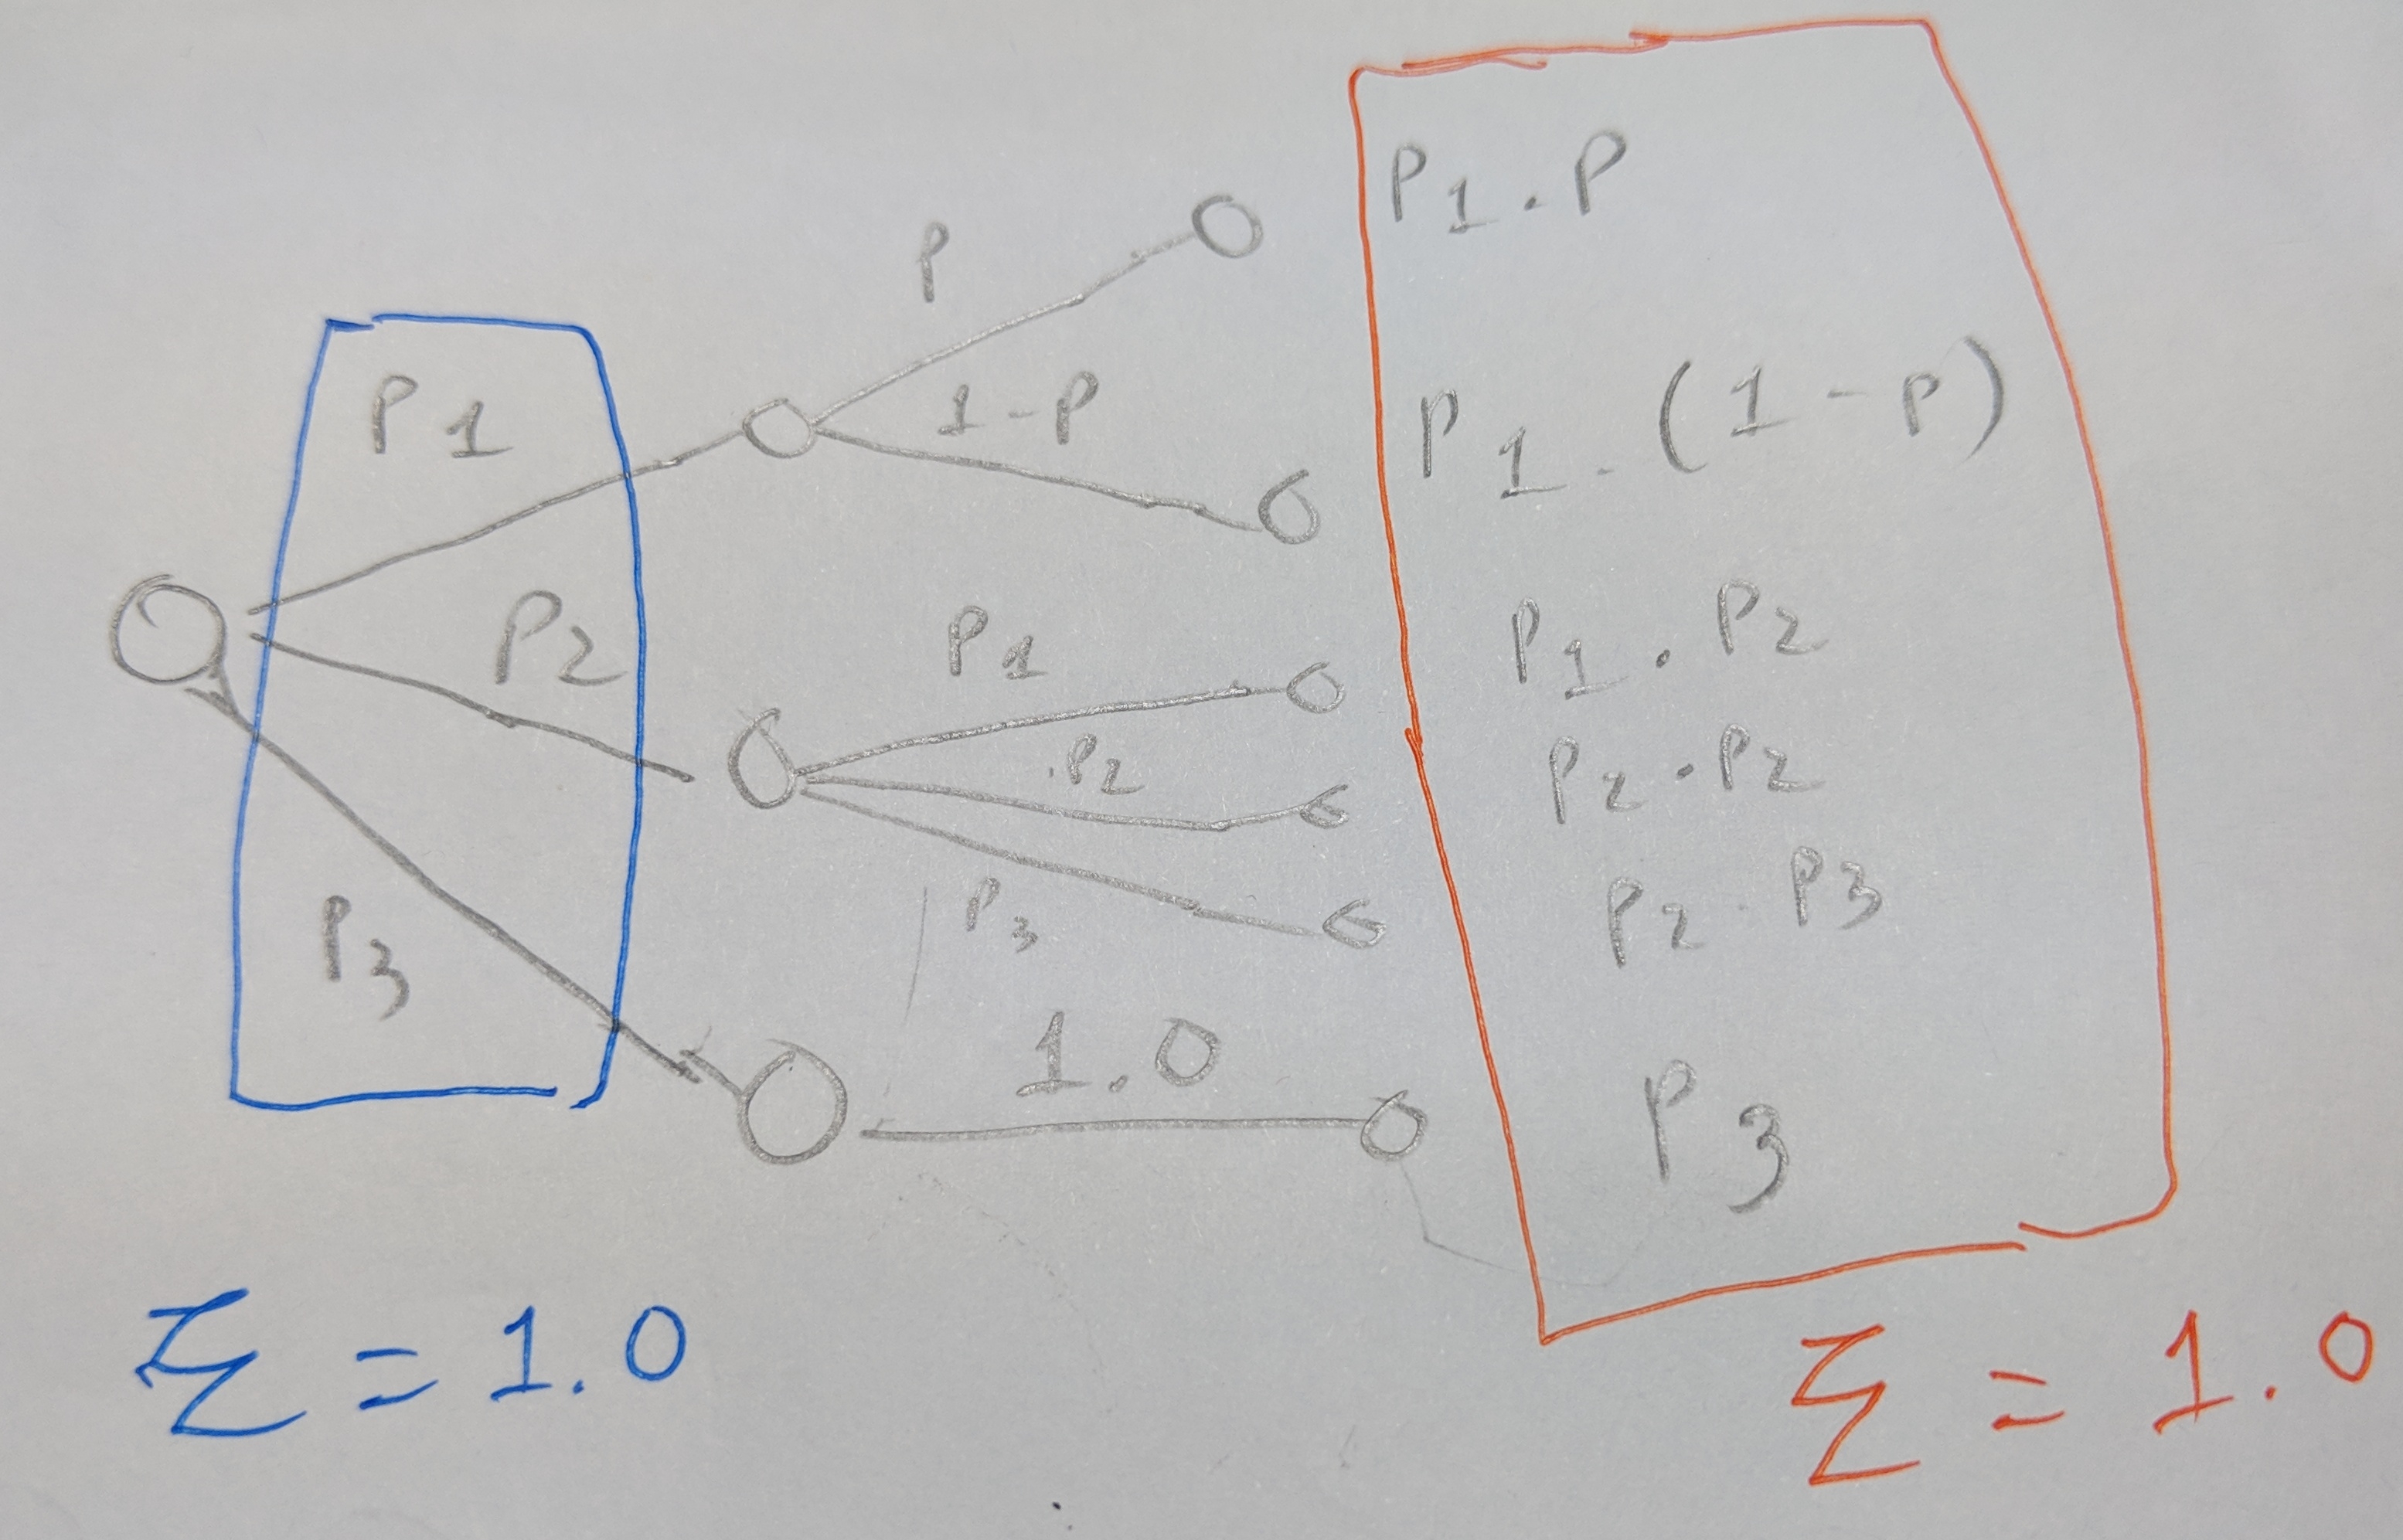 P1
P2
P3
P
1-P
P1
.P2
P3
1.0
P1.P
P1.(1-P)
P1.P2
P2.P2
P2.P3
P3
Σ=1.0
Σ=1.0